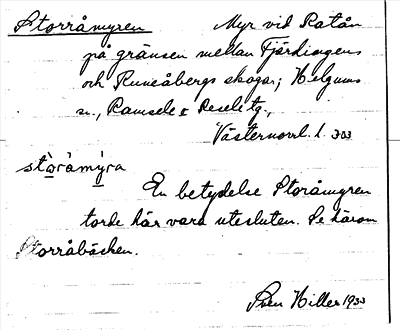 Storråmyren Myr vid Ratån
på gränsen mellan Fjärdingens
och Runeåbergs skogar; Helgums
sn., Ramsele & Resele tg.,
Västernorrl. l. 303
stòråmýra
En betydelse Storåmyren
torde här vara utesluten. Se härom
Storråbäcken.
Sven Hiller 1933